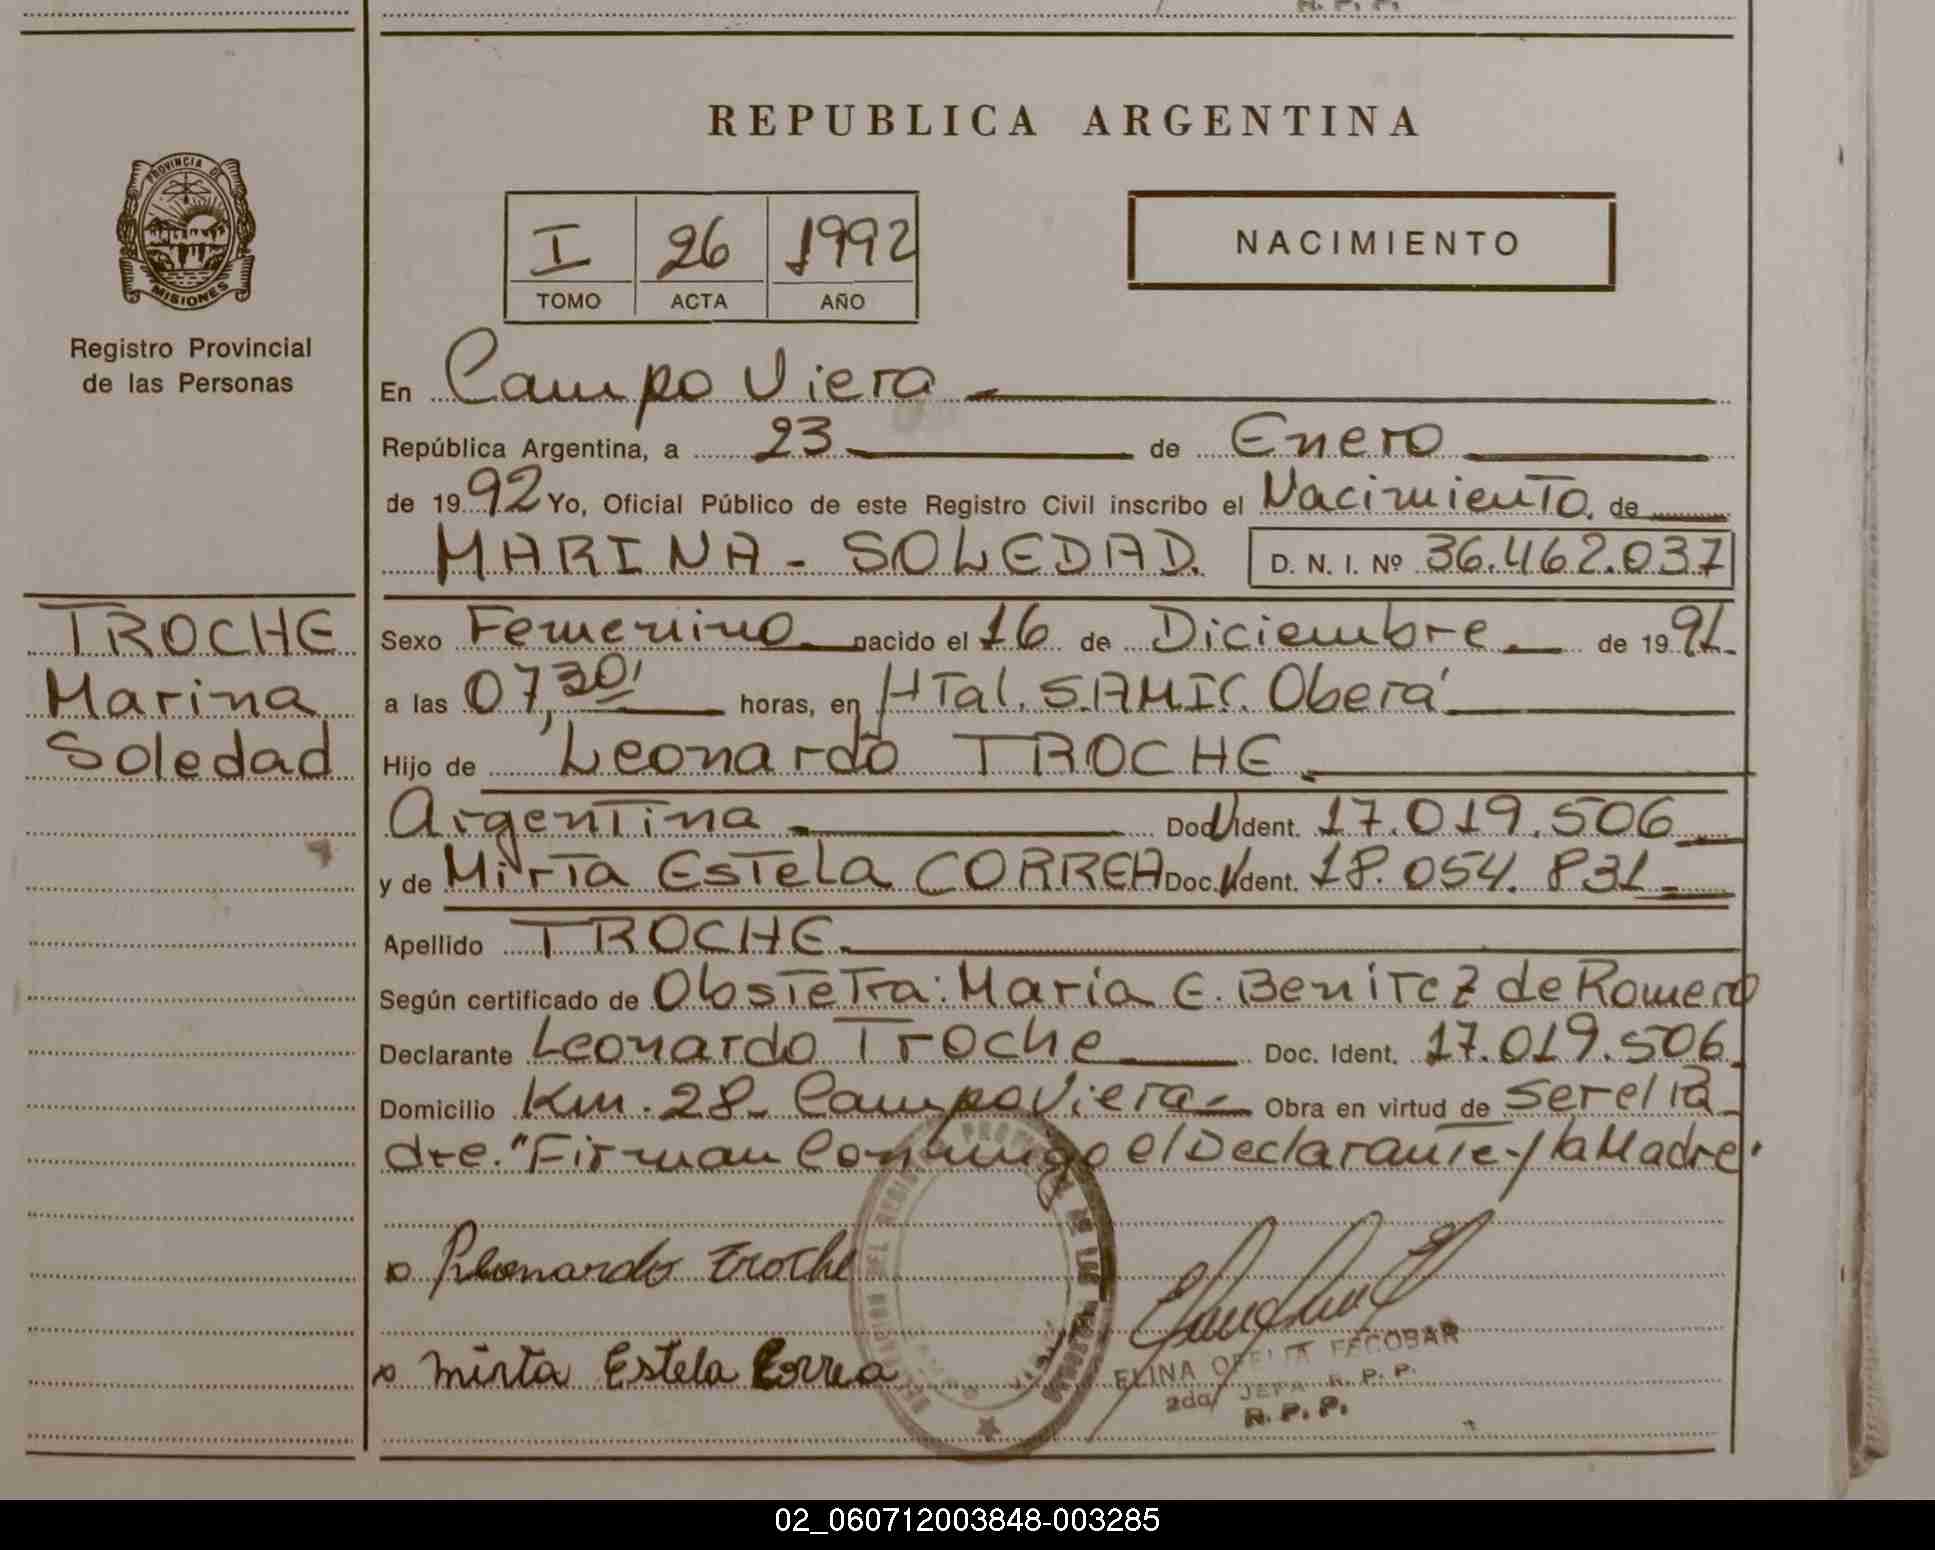 R. P. P.
REPUBLICA ARGENTINA
PROVINCIA DE
MISIONES
I 26 1992
TOMO ACTA AÑO
NACIMIENTO
Registro Provincial
de las Personas
En Campo Viera
República Argentina, a 23 de Enero
de 1992 Yo, Oficial Público de este Registro Civil inscribo el Nacimiento. de
MARINA - SOLEDAD. D. N. I. Nº 36.462.037
TROCHE
Marina
Soledad
Sexo Femenino nacido el 16 de Diciembre de 1991.
a las 07,30' horas, en HTal. S.AMIC. Oberá
Hijo de Leonardo TROCHE
Argentina Doc. Ident. 17.019.506
y de Mirta Estela CORREA Doc. Ident. 18.054.831
Apellido TROCHE
Según certificado de Obstetra: María E. Benitez de Romero
Declarante Leonardo Troche Doc. Ident. 17.019.506
Domicilio Km. 28 Campo Viera Obra en virtud de ser el Pa
dre. "Firman Conmingo el Declarante y la Madre.
Leonardo Troche
Mirta Estela Correa
ELINA OFELIA ESCOBAR
2da JEFA R. P. P.
R. P. P.
02_060712003848-003285